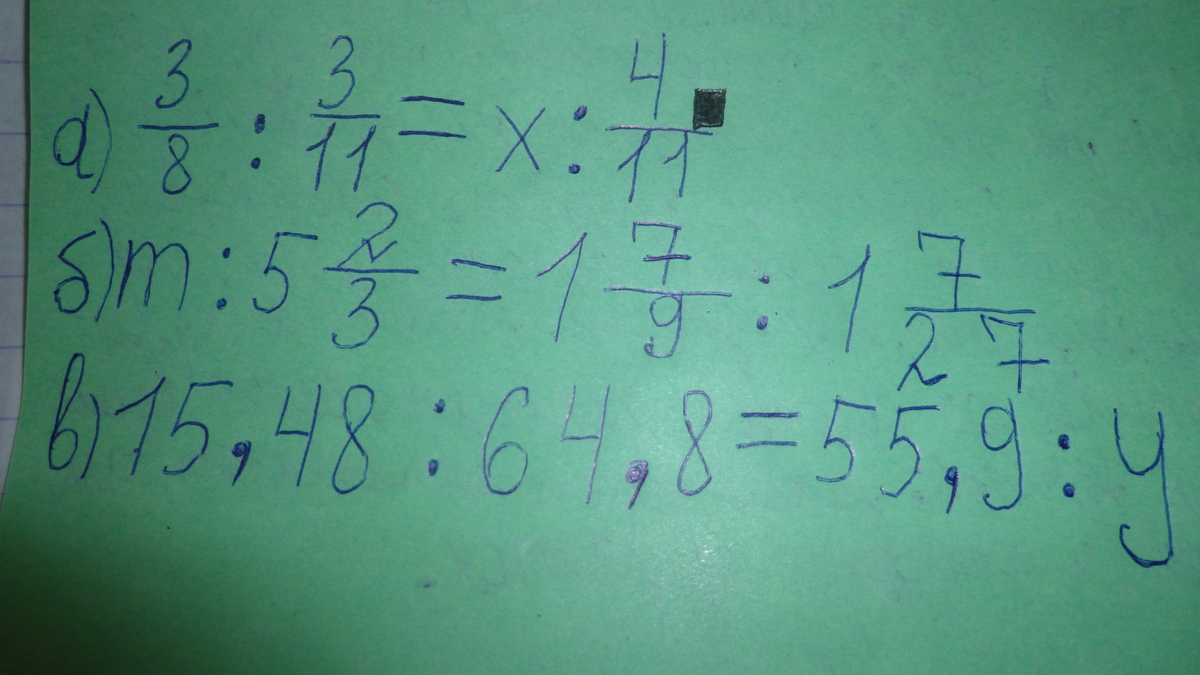 а) 3/8 : 3/11 = x : 4/11
б) m : 5 2/3 = 1 7/9 : 1 7/27
в) 15,48 : 64,8 = 55,9 : y